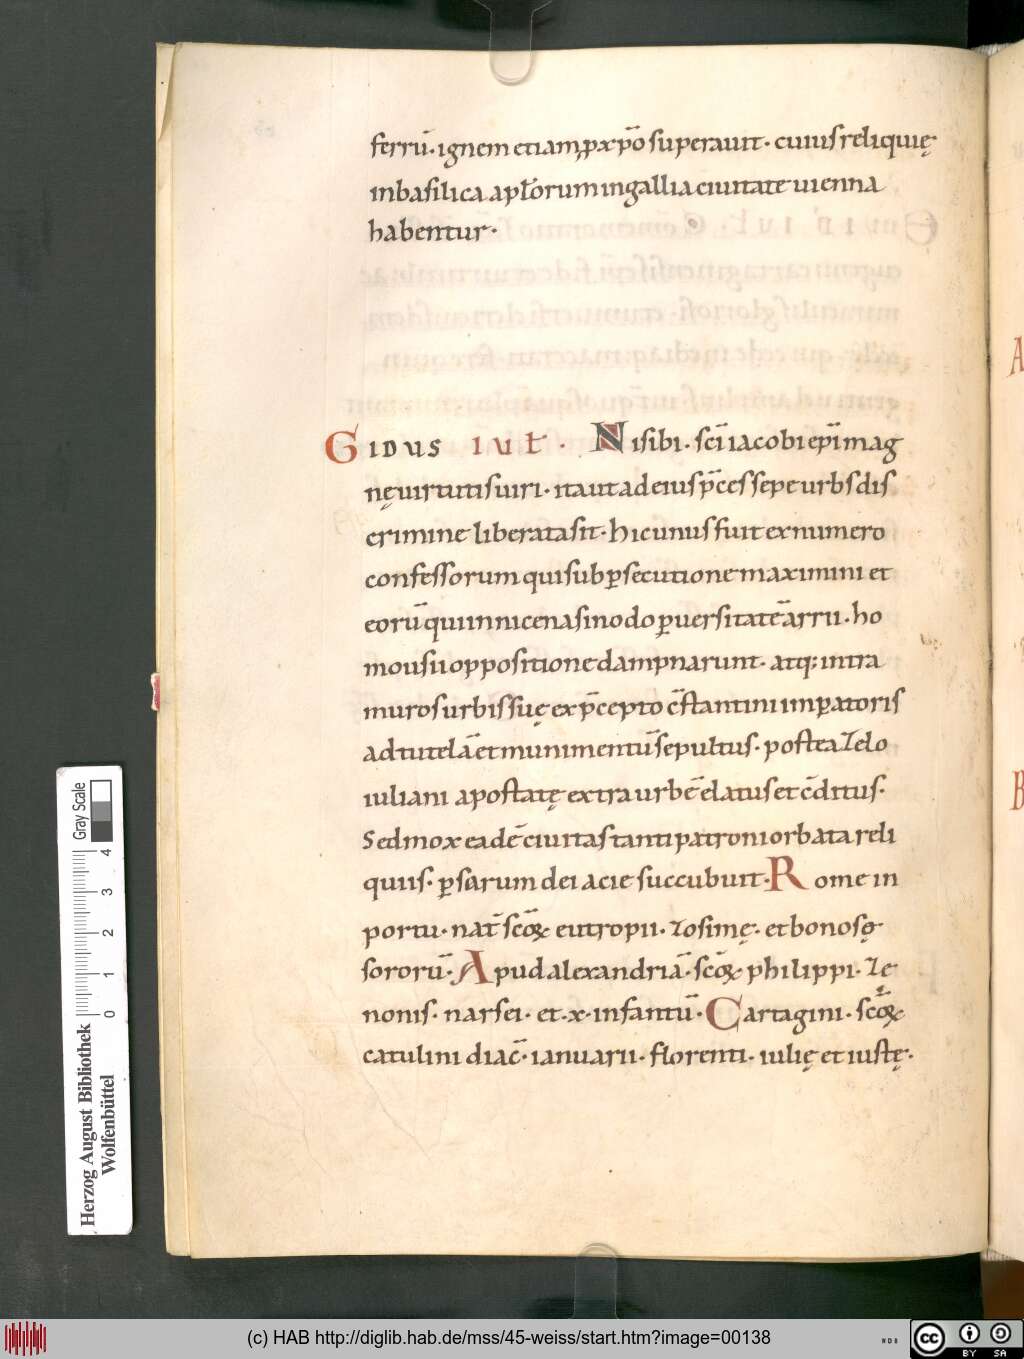 ferrū· ignem etiam ꝑ xp̄o superauit· cuius reliquię
in basilica apl̄orum in gallia ciuitate uienna
habentur·
G IDUS IUL̄· Nisibi· sc̄i iacobi ep̄i mag
nę uirtutis uiri· ita ut ad eius p̄ces sepe urbs dis
crimine liberata sit· hic unus fuit ex numero
confessorum qui sub ꝑsecutione maximini et
eorū qui in nicena sinodo ꝑuersitatē arrii· ho
mousii oppositione dampnarunt· atq; intra
muros urbis suę ex p̄cepto c̄stantini imꝑatoris
ad tutelā et munimentū sepultus· postea zelo
iuliani apostatę extra urbē elatus et c̄ditus·
Sed mox eadē ciuitas tanti patroni orbata reli
quiis· ꝑsarum dei acie succubuit· Rome in
portu· nat̄ sc̄oꝝ eutropii· zosimę· et bonosę
sororū· Apud alexandriā· sc̄oꝝ philippi· ze
nonis· narsei· et· x· infantū· Cartagini· sc̄oꝝ
catulini diac̄· ianuarii· florenti· iulię et iustę·
A
B
Gray Scale
4
3
2
1
0
Herzog August Bibliothek
Wolfenbüttel
(c) HAB http://diglib.hab.de/mss/45-weiss/start.htm?image=00138
WDB
cc
BY SA